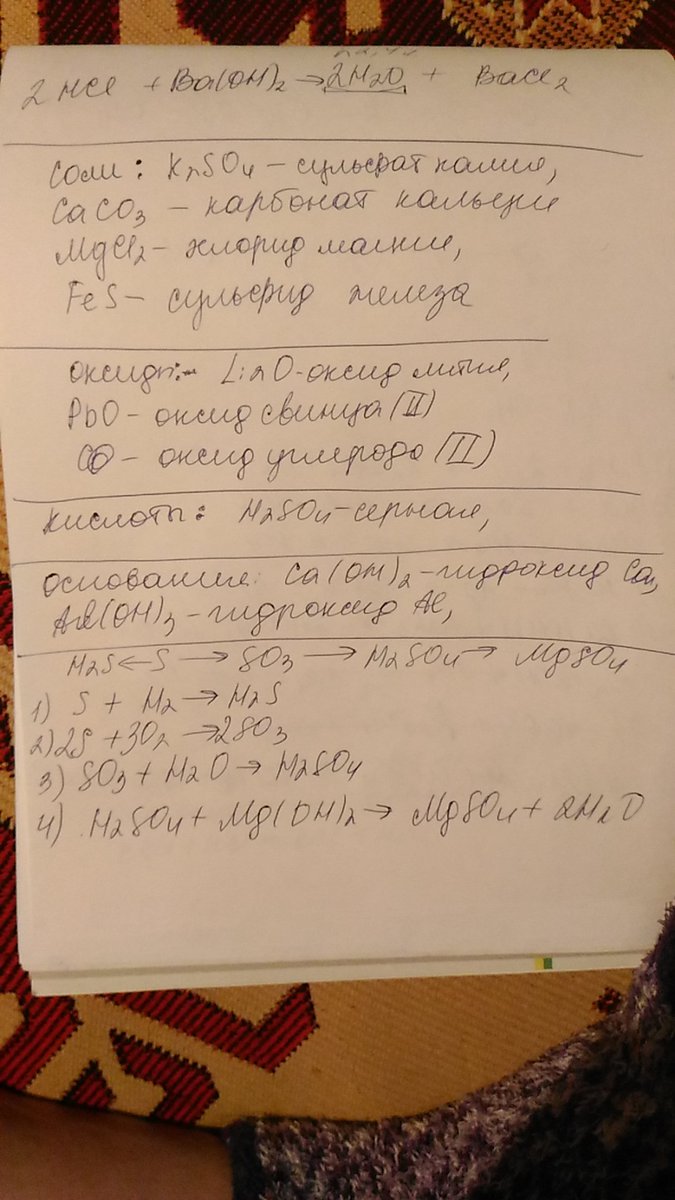 2HCl + Ba(OH)₂ → 2H₂O + BaCl₂
Соли: K₂SO₄ – сульфат калия,
CaCO₃ – карбонат кальция
MgCl₂ – хлорид магния,
FeS – сульфид железа
оксиды:- Li₂O-оксид лития,
PbO – оксид свинца (II)
CO – оксид углерода (II)
Кислоты: H₂SO₄-серная,
Основания: Ca(OH)₂-гидроксид Ca,
Al(OH)₃-гидроксид Al,
H₂S ← S → SO₃ → H₂SO₄ → MgSO₄
1) S + H₂ → H₂S
2) 2S + 3O₂ → 2SO₃
3) SO₃ + H₂O → H₂SO₄
4) H₂SO₄ + Mg(OH)₂ → MgSO₄ + 2H₂O